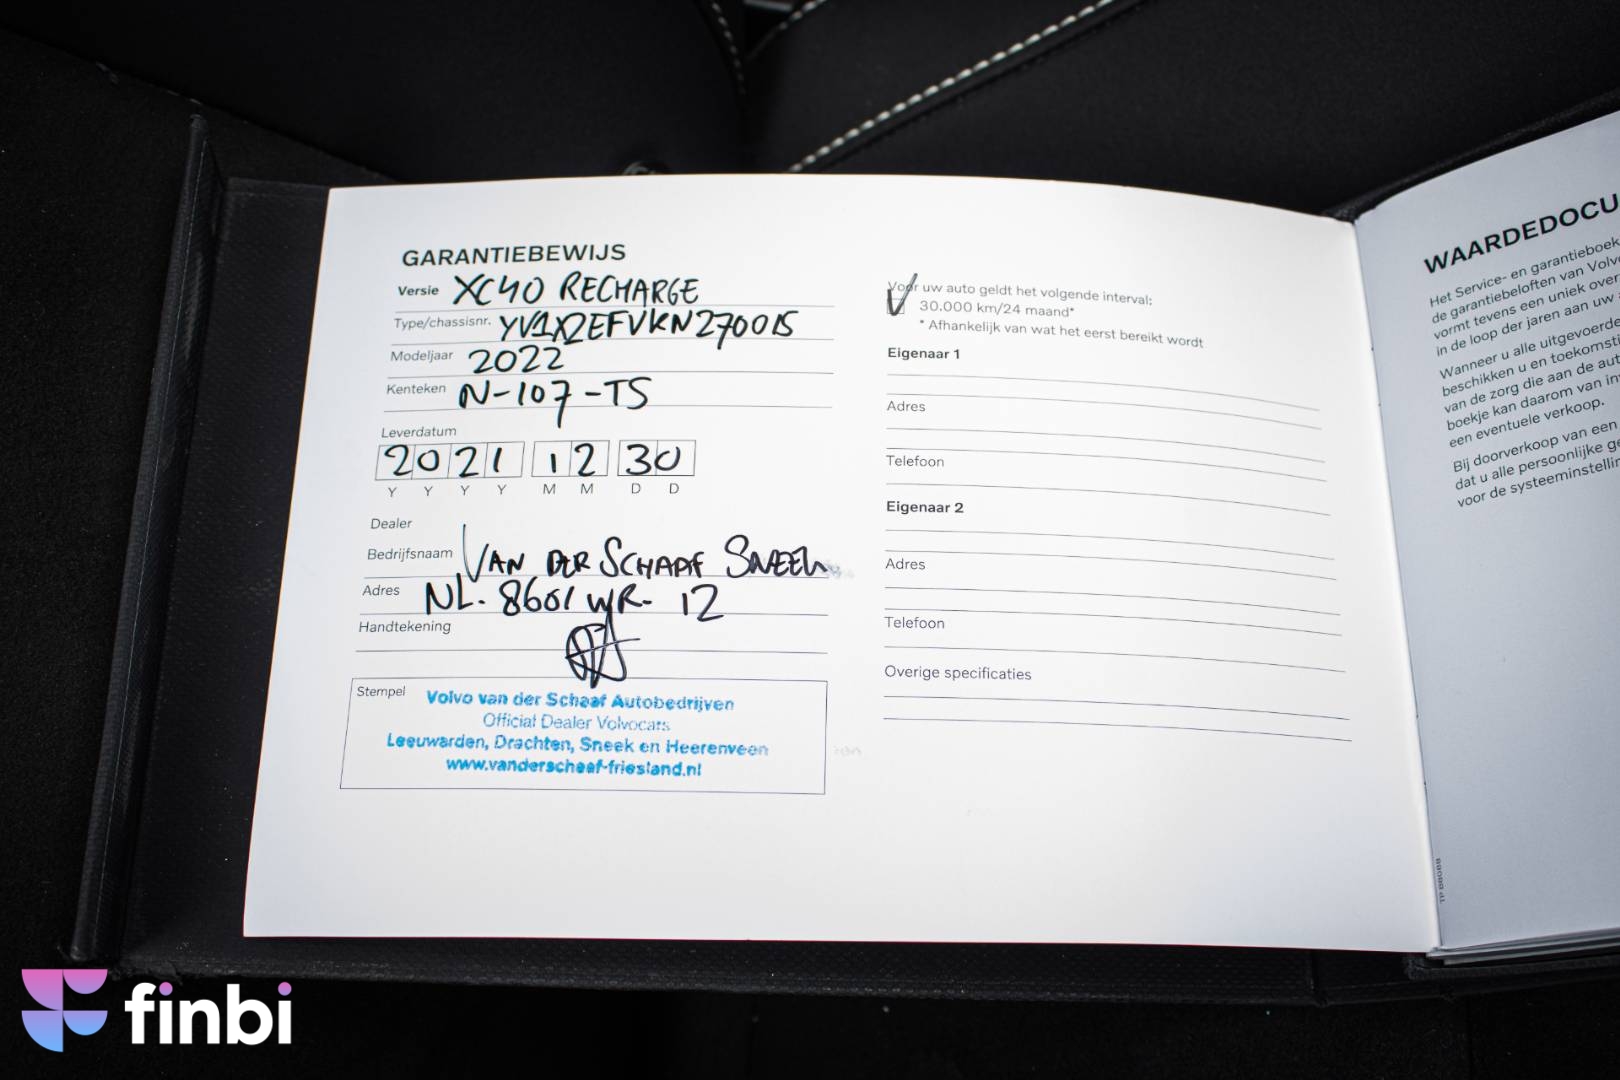 GARANTIEBEWIJS
Versie XC40 RECHARGE
Type/chassisnr. YV1XZEFVKN270015
Modeljaar 2022
Kenteken N-107-TS
Leverdatum
2021 12 30
Y Y Y Y M M D D
Dealer
Bedrijfsnaam VAN DER SCHAAF SNEEK
Adres NL. 8601 WR- 12
Handtekening
Stempel Volvo van der Schaaf Autobedrijven
Official Dealer Volvocars
Leeuwarden, Drachten, Sneek en Heerenveen
www.vanderschaaf-friesland.nl
Voor uw auto geldt het volgende interval:
30.000 km/24 maand*
* Afhankelijk van wat het eerst bereikt wordt
Eigenaar 1
Adres
Telefoon
Eigenaar 2
Adres
Telefoon
Overige specificaties
WAARDEDOCU
Het Service- en garantieboek
de garantiebeloften van Volv
vormt tevens een uniek over
in de loop der jaren aan uw
Wanneer u alle uitgevoerde
beschikken u en toekomsti
van de zorg die aan de aut
boekje kan daarom van in
een eventuele verkoop.
Bij doorverkoop van een
dat u alle persoonlijke ge
voor de systeeminstellin
finbi